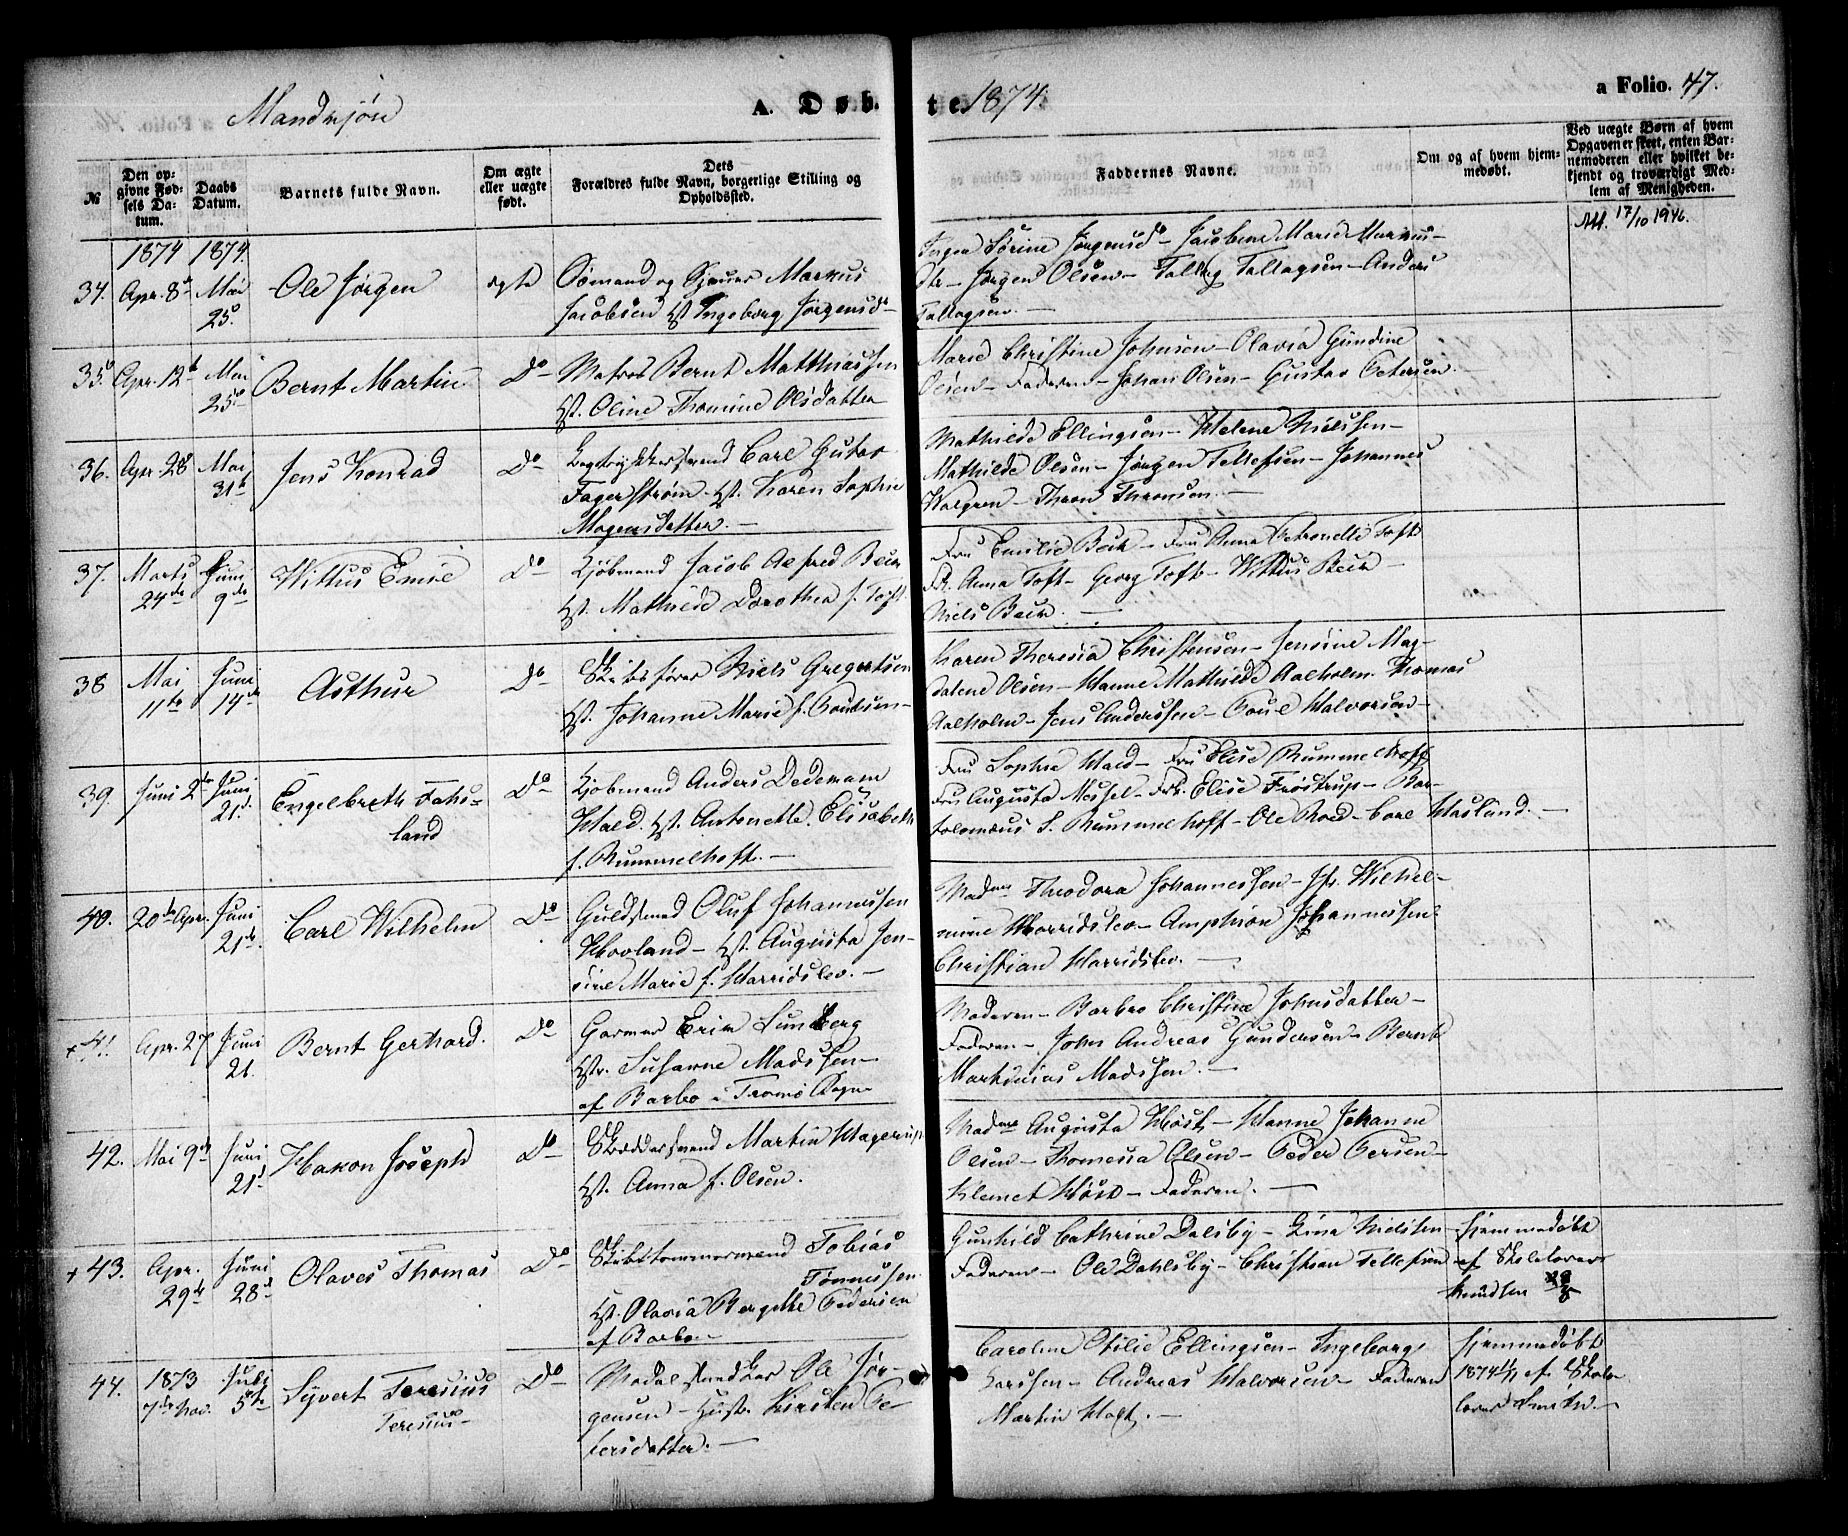 Mandkjøn A. Døbte 1874. a Folio. 47.
№ Den opgivne Fødsels Datum. Daabs Datum. Barnets fulde Navn. Om ægte eller uægte født. Dets Forældres fulde Navn, borgerlige Stilling og Opholdssted. Faddernes Navne. Om og af hvem hjemmedøbt. Ved uægte Børn af hvem Opgaven er skeet, enten Barnemoderen eller hvilket bekjendt og troværdigt Medlem af Menigheden.
1874 1874.
Att. 17/10 1946.
34. Apr. 8de Mai 25. Ole Jørgen ægte
Sømand og Markus
Jacobsen Hst. Ingeborg Jørgensd.
Inger Sørine Jørgensd. – Jacobine Marie Markus-
dtr – Jørgen Olsen – Tallag Tallagsen – Anders
Tallagsen. –
35. Apr. 12te Mai 25de Bernt Martin Do
Matros Bernt Matthiassen
Hst. Oline Thomine Olsdatter
Marie Christine Johnsen – Olavia Gundine
Olsen – Faderen – Johan Olsen – Gustav Petersen. –
36. Apr. 28 Mai 31te Jens Konrad Do
Bogtrykkersvend Carl Gustav
Fagerstrøm. Hst. Karen Sophie
Mogensdatter. –
Mathilde Ellingsen – Helene Nielsen –
Mathilde Olsen – Jørgen Tellefsen – Johannes
Walgren – Thron Thronsen. –
37. Marts 24de Juni 9de Wittus Emil Do
Kjøbmand Jacob Alfred Beck
Hst. Mathilde Dorothea f. Toft
Fru Emilie Beck – Fru Anna Petronelle Toft
Frk. Anna Toft – Georg Toft – Wittus Beck –
Niels Beck. –
38 Mai 11te Juni 14de Arthur Do
Skibsfører Niels Gregertsen
Hst. Johanne Marie f. Poulsen –
Karen Theresia Christensen – Jensine Mag-
dalene Olsen – Hanne Mathilde Aalholm. Thomas
Aalholm – Jens Anderssen – Poul Halvorsen –
39. Juni 2de Juni 21. Engelbreth Fahsland Do
Kjøbmand Anders Dedekam
Hald. Hst. Antonette Elisabeth
f. Rummelhoff. –
Fru Sophie Hald – Fru Elise Rummelhoff
Fru Augusta Mossel – Frk. Elise Frøstrup – Bar-
tolomæus S. Rummelhoff – Ole Roed – Carl Hasland. –
40. 20de Apr. Juni 21de Carl Wilhelm Do
Guldsmed Oluf Johannessen
Hovland – Hst. Augusta Jen-
sine Marie f. Harridslev. –
Madme Theodora Johannessen – Jfr. Wilhel-
mine Harridslev – Amphion Johannessen
Christian Harridslev. –
+ 41. Apr. 27 Juni 21. Bernt Gerhard. Do
Garver Erik Lundberg
Hstr. Susanne Madssen –
af Barbo i Tromø Sogn
Moderen – Barbro Christine Johnsdatter –
Faderen – John Andreas Gundersen – Bernt
Markusius Madssen. –
42. Mai 9de Juni 21de Hakon Joseph Do
Skræddersvend Martin Hagerup
Hst. Anna f. Olsen.
Madme Augusta Høst – Hanne Johanne
Olsen – Thomessa Olsen – Peder Persen –
Klemet Høst – Faderen. –
+ 43. Apr. 29de Juni 28de Olaves Thomas Do
Skibstømmermand Tobias
Tønnessen
Hst. Olavia Bergitte Pedersen
af Barbo –
Gunhild Cathrine Dalsby – Lina Nielsen
Faderen – Ole Dahlsby – Christian Tellefsen
hjemmedøbt
af Skolelærer
Knudsen
44. 1873 7de Nov. Juli 5te Syvert Teresius Do
Teresius –
Ole Jør-
gensen – Hustr. Kirsten Pe-
tersdatter. –
Caroline Otilie Ellingsen – Ingeborg
Larssen – Andreas Halvorsen – Faderen
Martin Holt. –
hjemmedøbt
1874 af Skole-
lærer